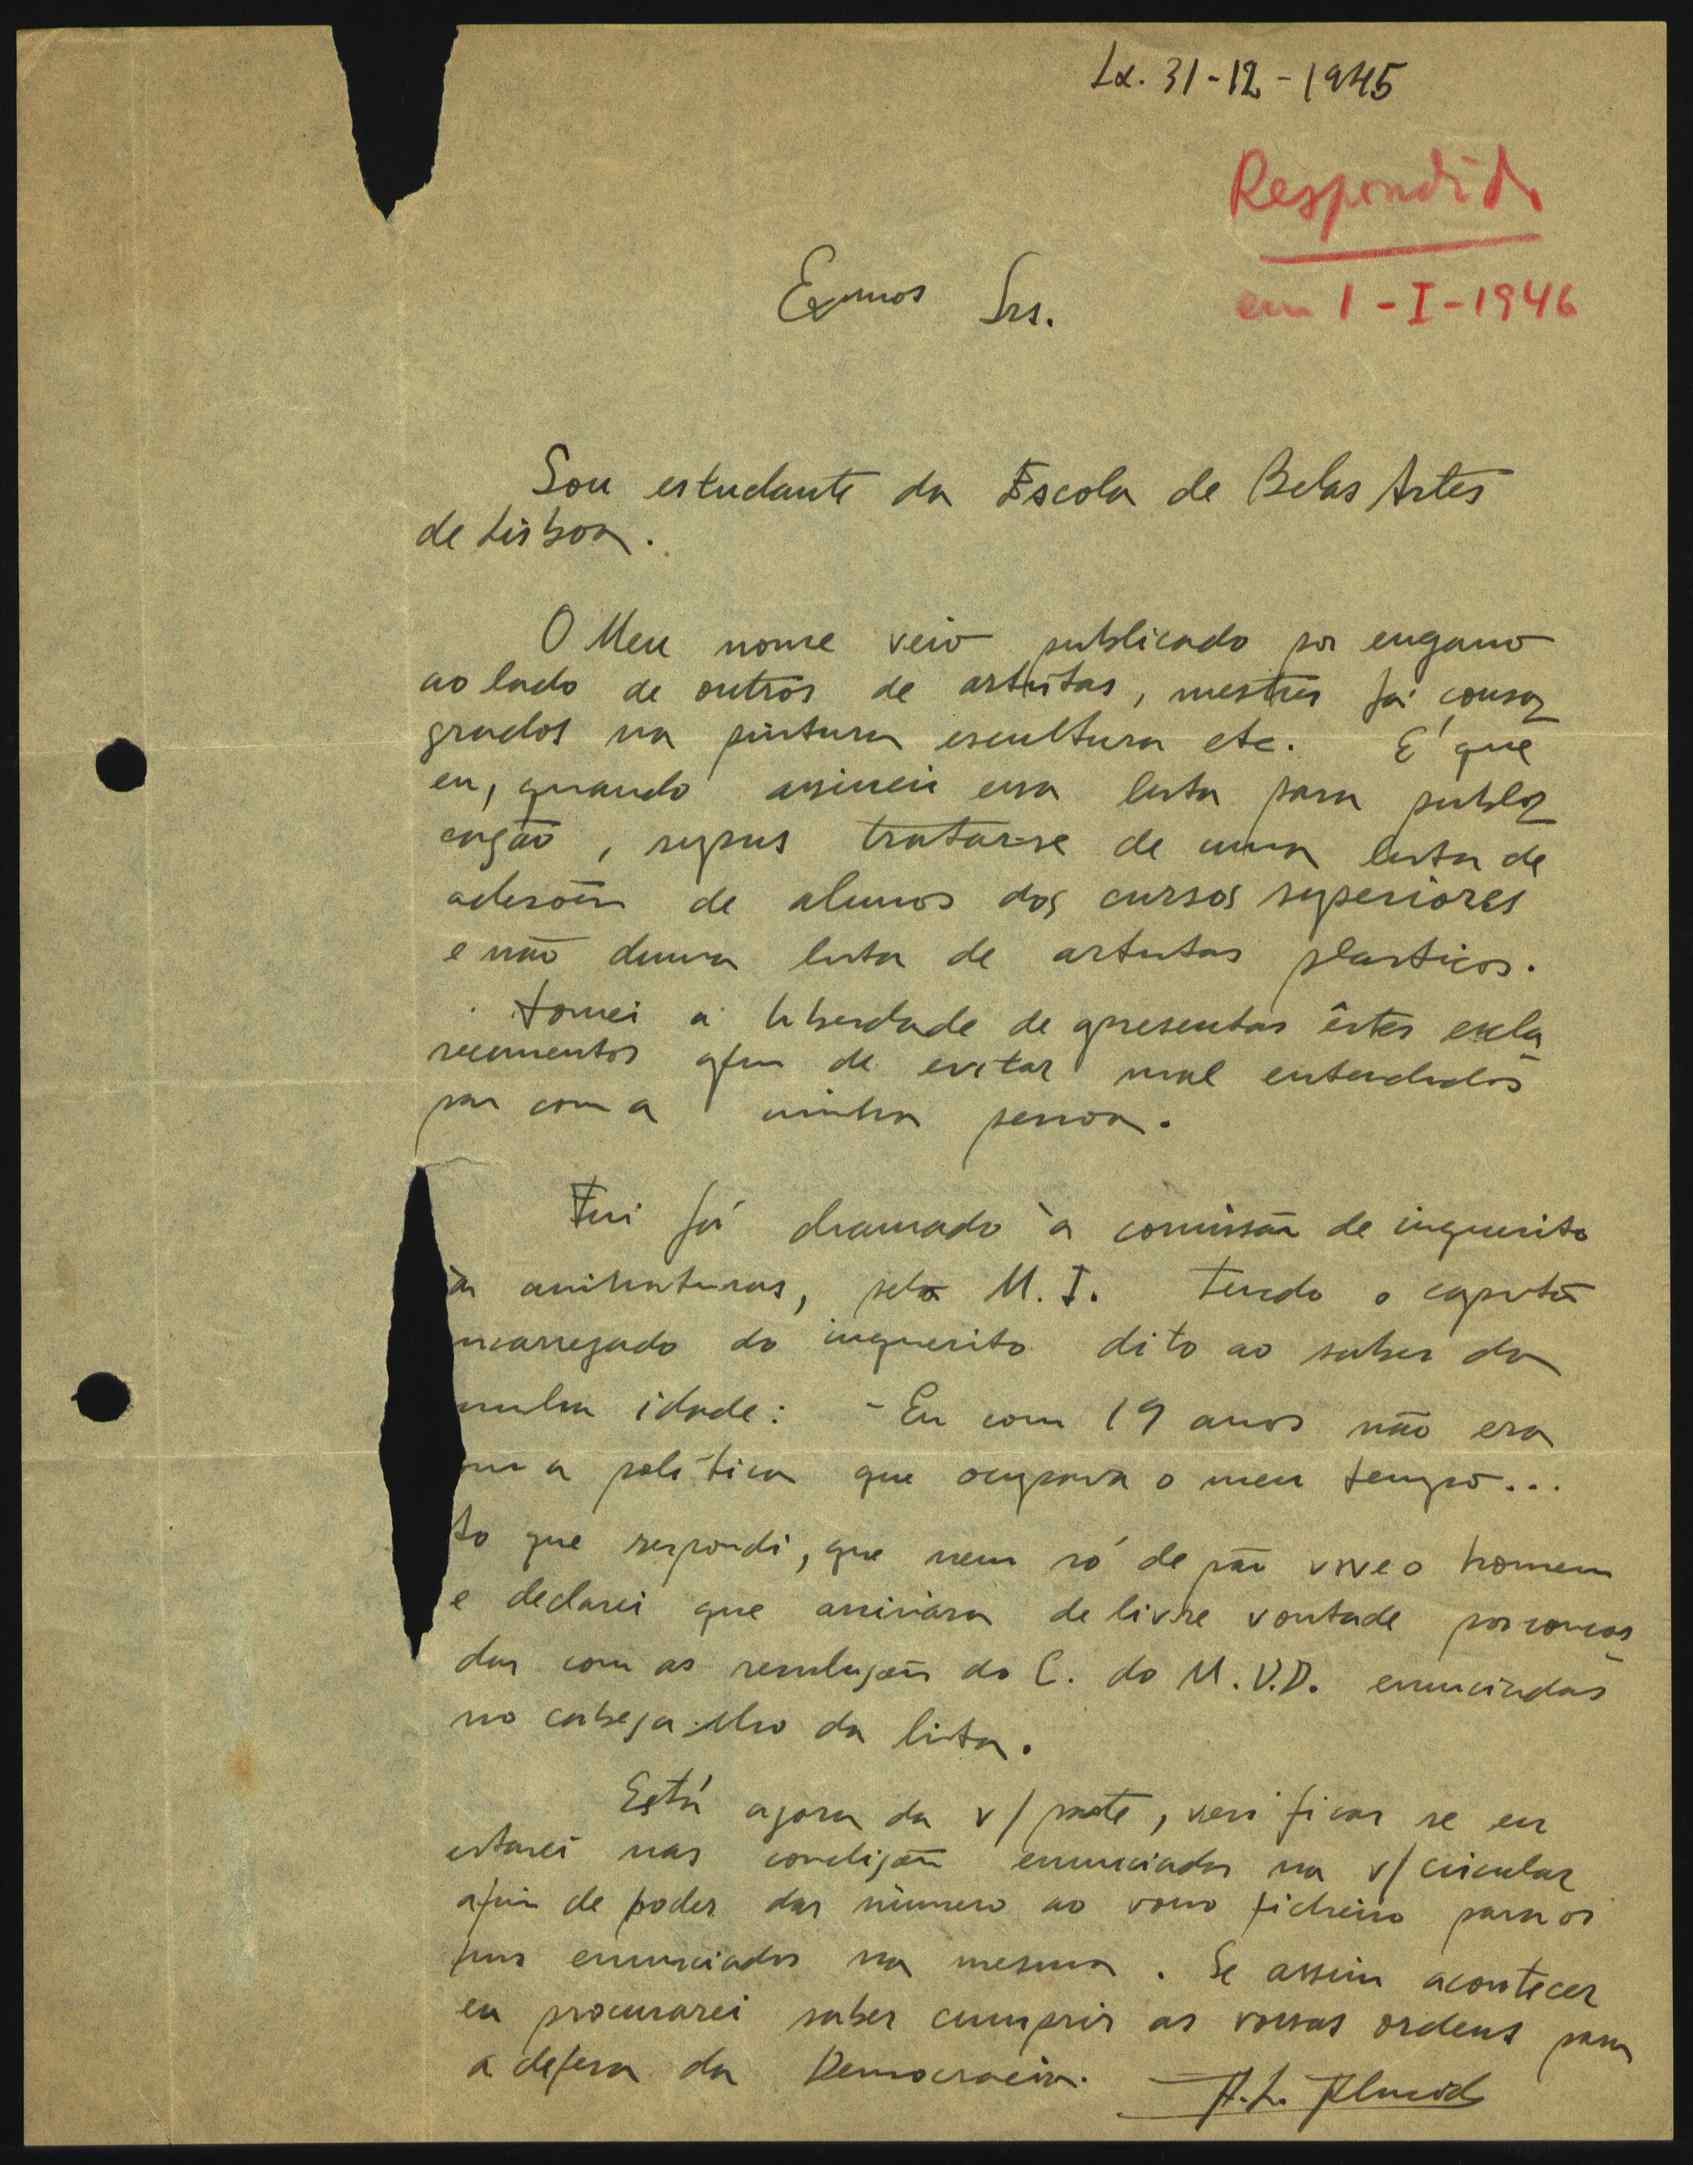 Lx. 31-12-1945
Respondido
em 1-I-1946
Exmos Srs.
Sou estudante da Escola de Belas Artes
de Lisboa.
O Meu nome veio publicado por engano
ao lado de outros de artistas, mestres já consa
grados na pintura escultura etc. E' que
eu, quando assinei essa lista para publi
cação, supus tratar-se de uma lista de
adesões de alunos dos cursos superiores
e não duma lista de artistas plasticos.
Tomei a liberdade de apresentar êstes escla
recimentos afim de evitar mal entendidos
par com a minha pessoa.
Fui já chamado à comissão de inquerito
às assinaturas, pelo M.I. Tendo o capitão
ncarregado do inquerito dito ao saber da
minha idade: - Eu com 19 anos não era
om a politica que ocupava o meu tempo...
Ao que respondi, que nem só de pão vive o homem
e declarei que assinára de livre vontade por concor
dar com as resoluções do C. do M.U.D. enunciadas
no cabeçalho da lista.
Está agora da v/ parte, verificar se eu
estarei nas condições enunciadas na v/ circular
afim de poder dar número ao vosso ficheiro para os
fins enunciados na mesma. Se assim acontecer
eu procurarei saber cumprir as vossas ordens para
a defesa da Democracia.
A.L. Almeida